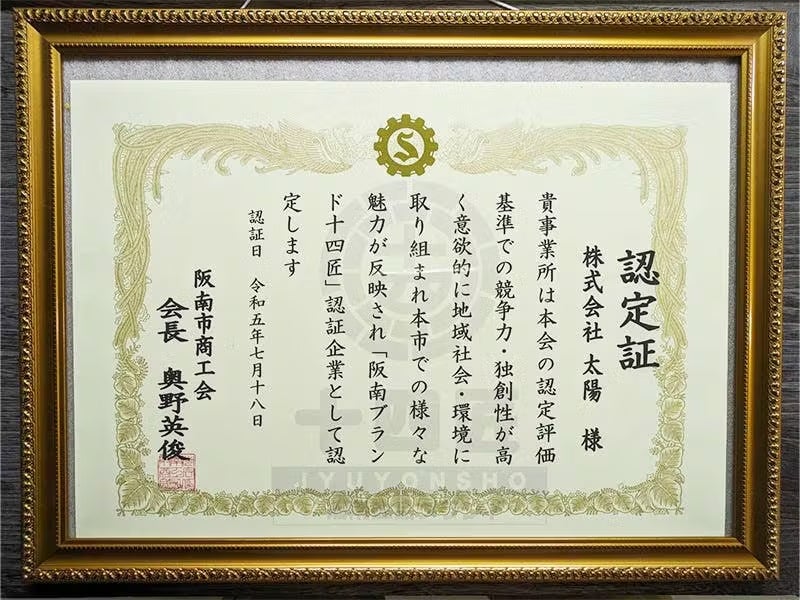 認定証
株式会社 太陽 様
貴事業所は本会の認定評価
基準での競争力・独創性が高
く意欲的に地域社会・環境に
取り組まれ本市での様々な
魅力が反映され「阪南ブラン
ド十四匠」認証企業として認
定します
認証日 令和五年七月十八日
阪南市商工会
会長 奥野英俊
十四匠
JYUYONSHO